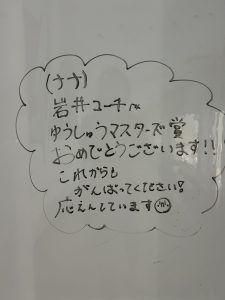 (ナナ)
岩井コーチへ
ゆうしゅうマスターズ賞
おめでとうございます!!
これからも
がんばってください!
応えんしています